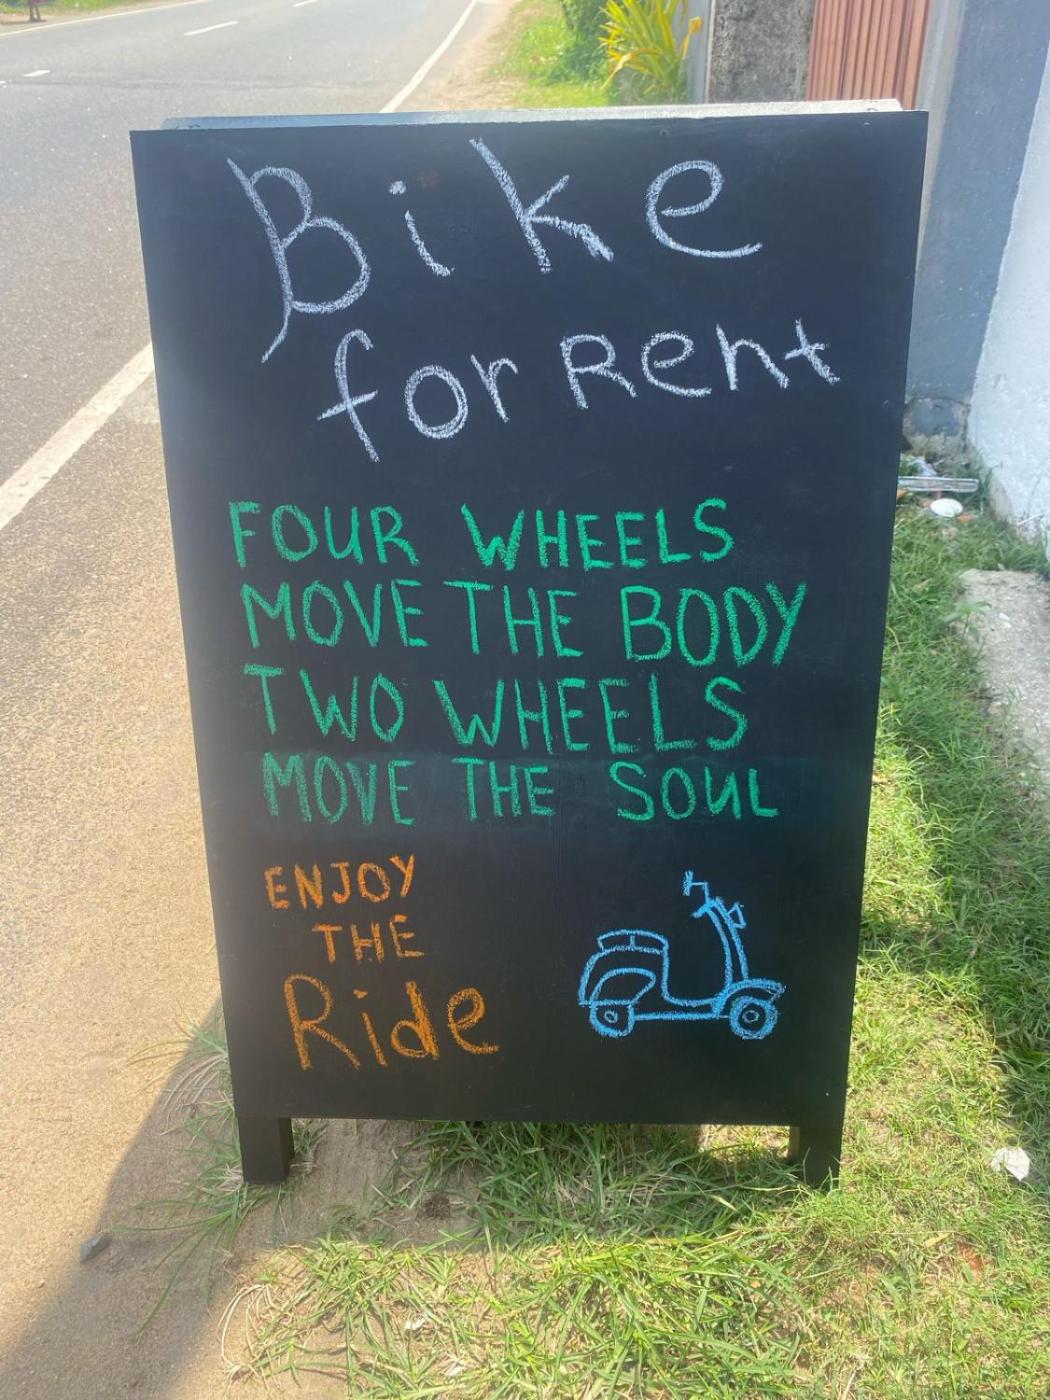 Bike
for Rent
FOUR WHEELS
MOVE THE BODY
TWO WHEELS
MOVE THE SOUL
ENJOY
THE
Ride